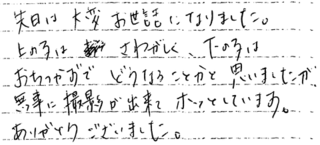 先日は大変お世話になりました。
上の子は さわがしく、下の子は
おちつかずで どうなることかと思いましたが
無事に撮影が出来てホッとしています。
ありがとうございました。